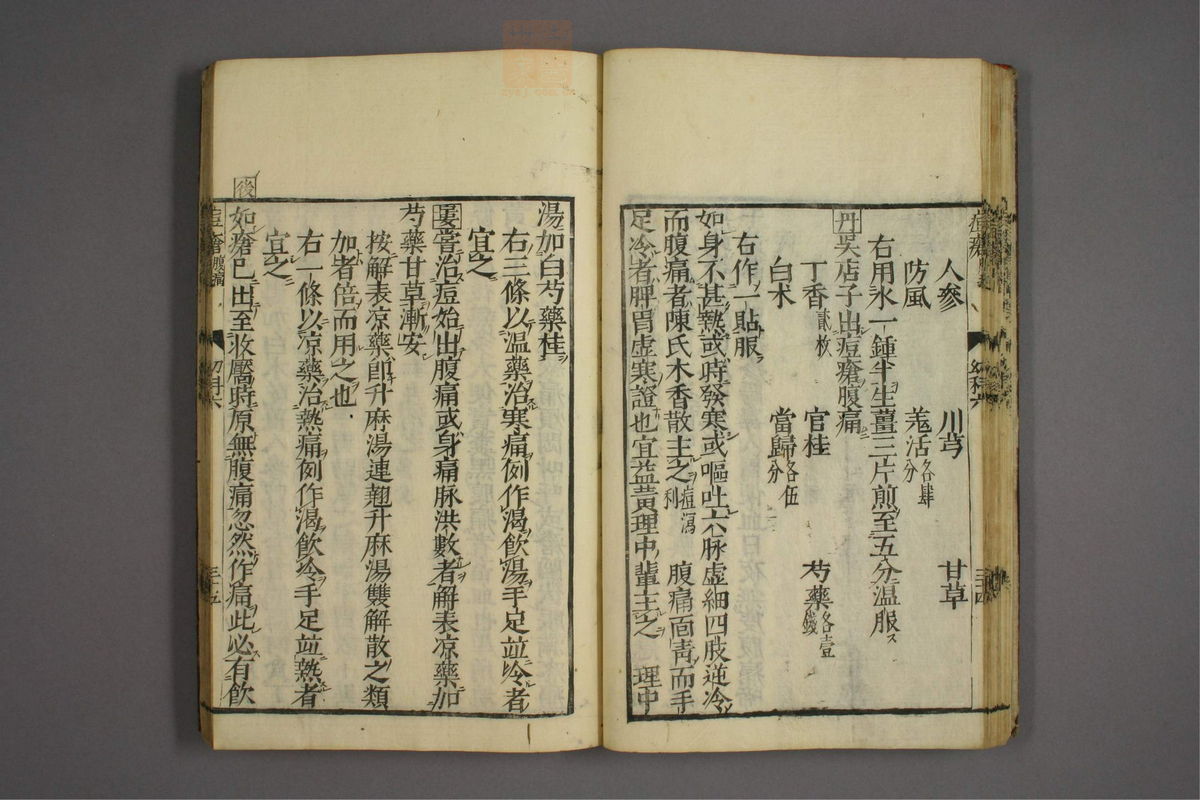 人參　川芎　甘草
防風　羗活各肆分
右用水一鍾半生薑三片煎至五分温服
丹吳店子出痘瘡腹痛
丁香貳枚　官桂　芍藥各壹錢
白朮　當歸各伍分
右作一貼服
如身不甚熱或時發寒或嘔吐六脉虚細四肢逆冷
而腹痛者陳氏木香散主之痘瀉利　腹痛面靑而手
足冷者脾胃虚寒證也宜益黃理中輩主之　理中
湯加白芍藥桂
右三條以温藥治寒痛例作渴飲湯手足並冷者
宜之
婁嘗治痘始出腹痛或身痛脉洪數者解表凉藥加
芍藥甘草漸安
按解表凉藥即升麻湯連翹升麻湯雙解散之類
加者倍而用之也
右一條以凉藥治熱痛例作渴飲冷手足並熱者
宜之
後
如瘡已出至收靨時原無腹痛忽然作痛此必有飲
痘瘡腹痛
幼科六
三十五
痘瘡
幼科六
三十四